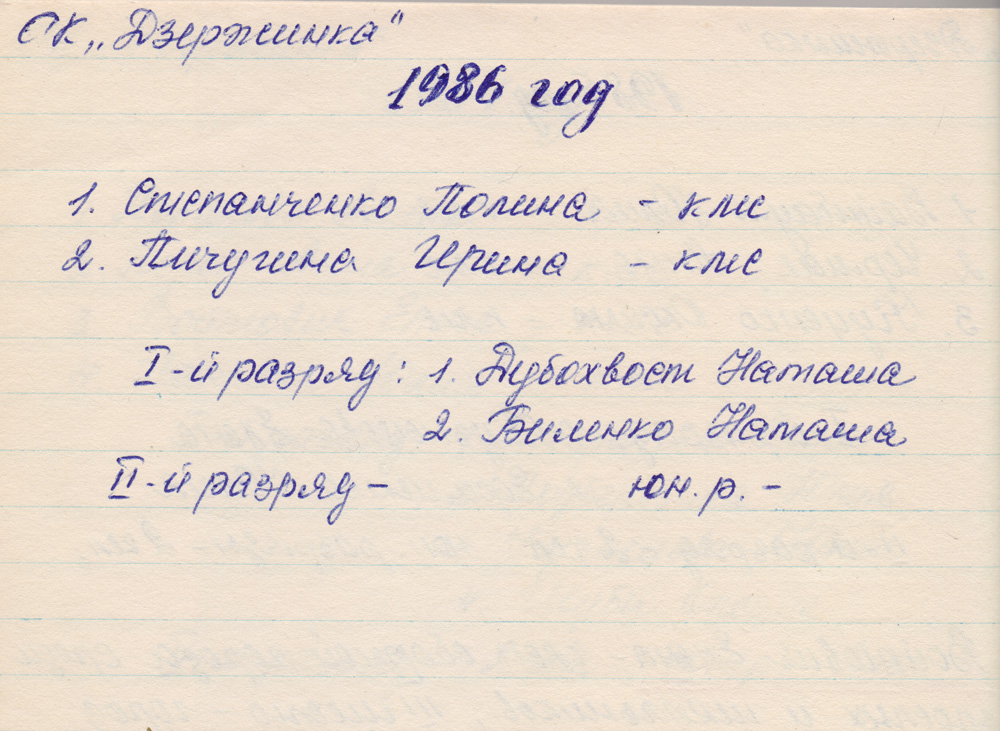 СК „Дзержинка“
1986 год
1. Степанченко Полина - кмс
2. Пичугина Ирина - кмс
I-й разряд: 1. Дубохвост Наташа
2. Биленко Наташа
II-й разряд - юн. р. -